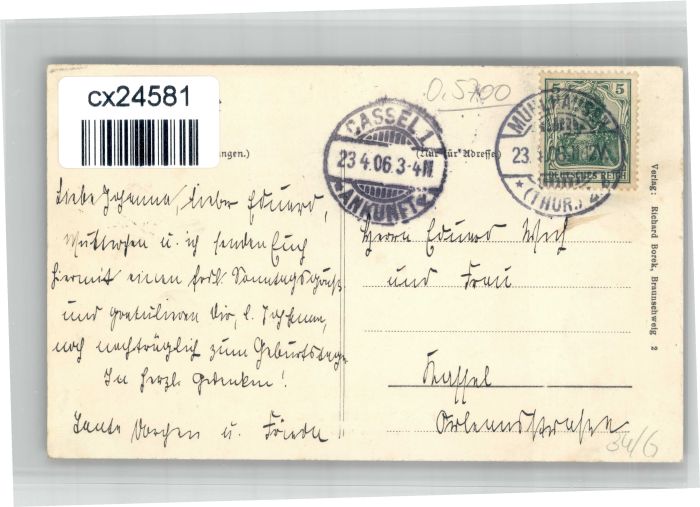 cx24581
0.5700
CASSEL 1
23.4.06.3-4N
*ANKUNFT*
MÜHLHAUSEN
23.
*(THÜR.)
5 5
DEUTSCHES REICH
ungen.)
(Nur für Adresse)
Liebe Johanna, lieber Eduard,
Mütterchen u. ich senden Euch
hiermit einen frdl. Sonntagsgruß
und gratulieren dir, l. Johanna,
noch nachträglich zum Geburtstage
In herzl. Gedenken!
Tante Dorchen u. Frieda
Herrn Eduard
und Frau
Kassel
Orleansstrasse
34/6
Verlag: Richard Borek, Braunschweig 2